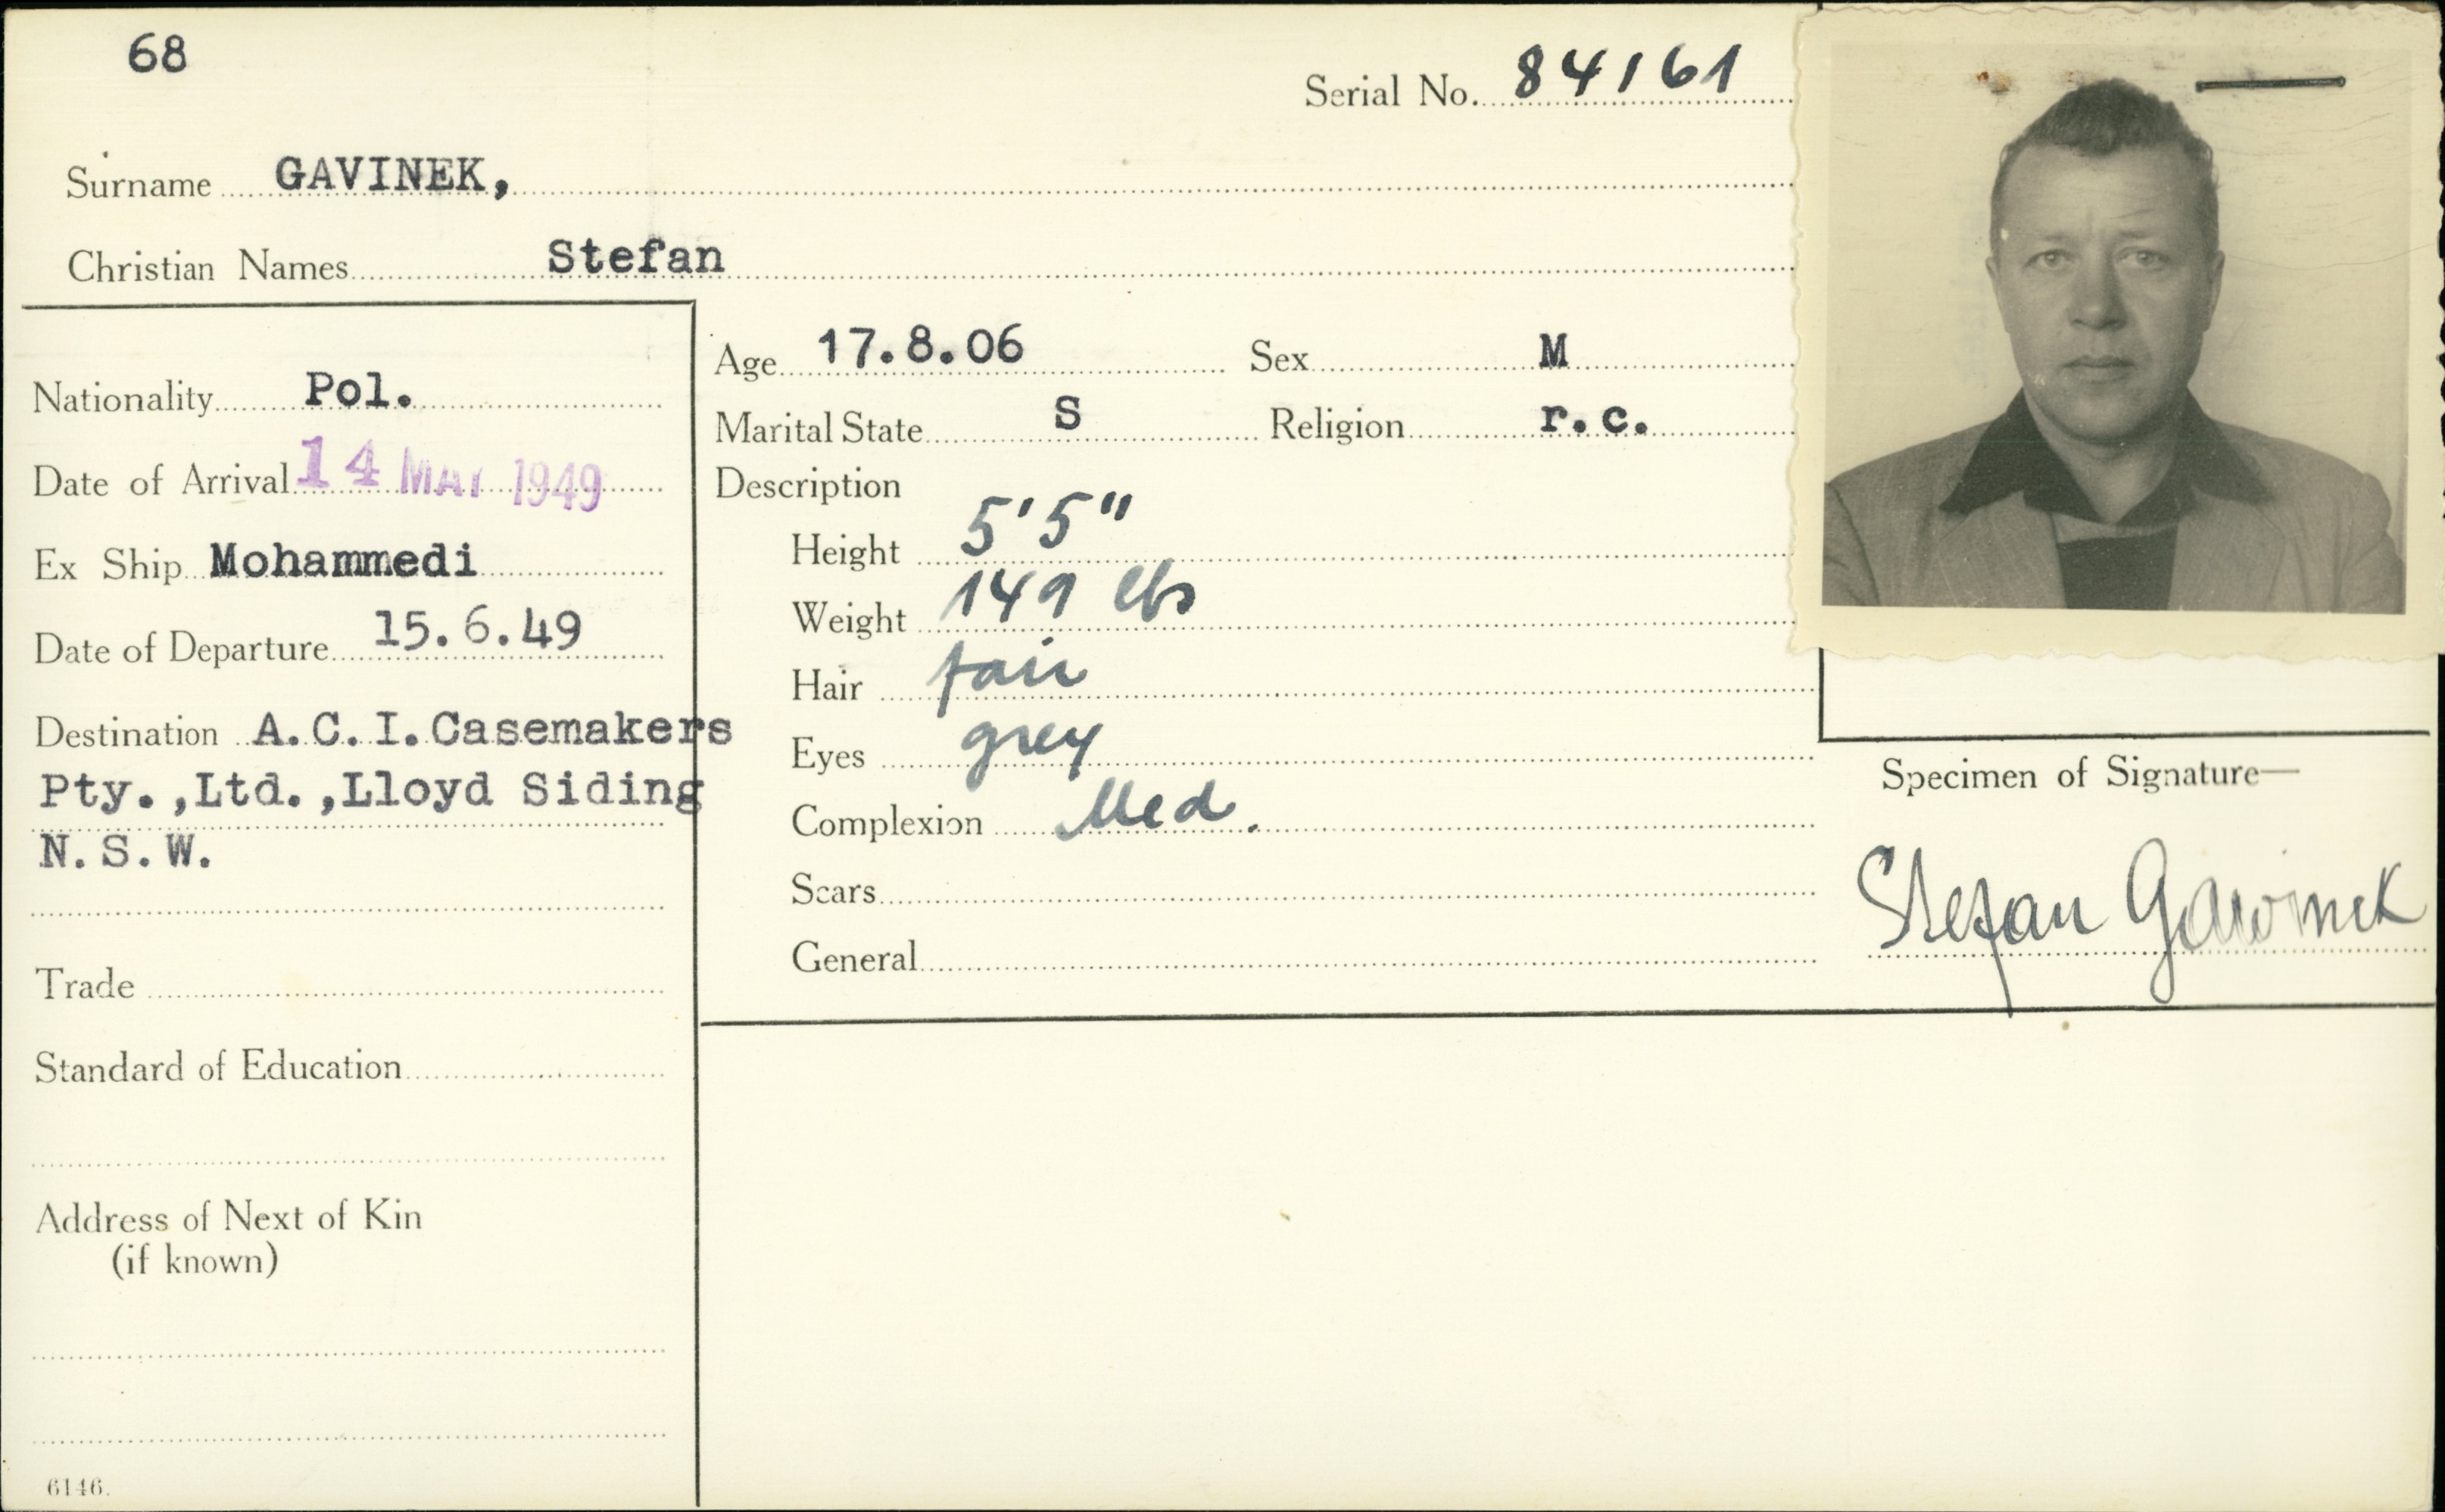 68
Serial No. 84161
Surname GAVINEK,
Christian Names Stefan
Nationality Pol.
Date of Arrival 14 MAY 1949
Ex Ship Mohammedi
Date of Departure 15.6.49
Destination A.C.I.Casemakers
Pty.,Ltd.,Lloyd Siding
N.S.W.
Trade
Standard of Education
Address of Next of Kin
(if known)
6146.
Age 17.8.06 Sex M
Marital State S Religion r.c.
Description
Height 5'5"
Weight 149 lbs
Hair fair
Eyes grey
Complexion Med.
Scars
General
Specimen of Signature—
Stefan Gawinek